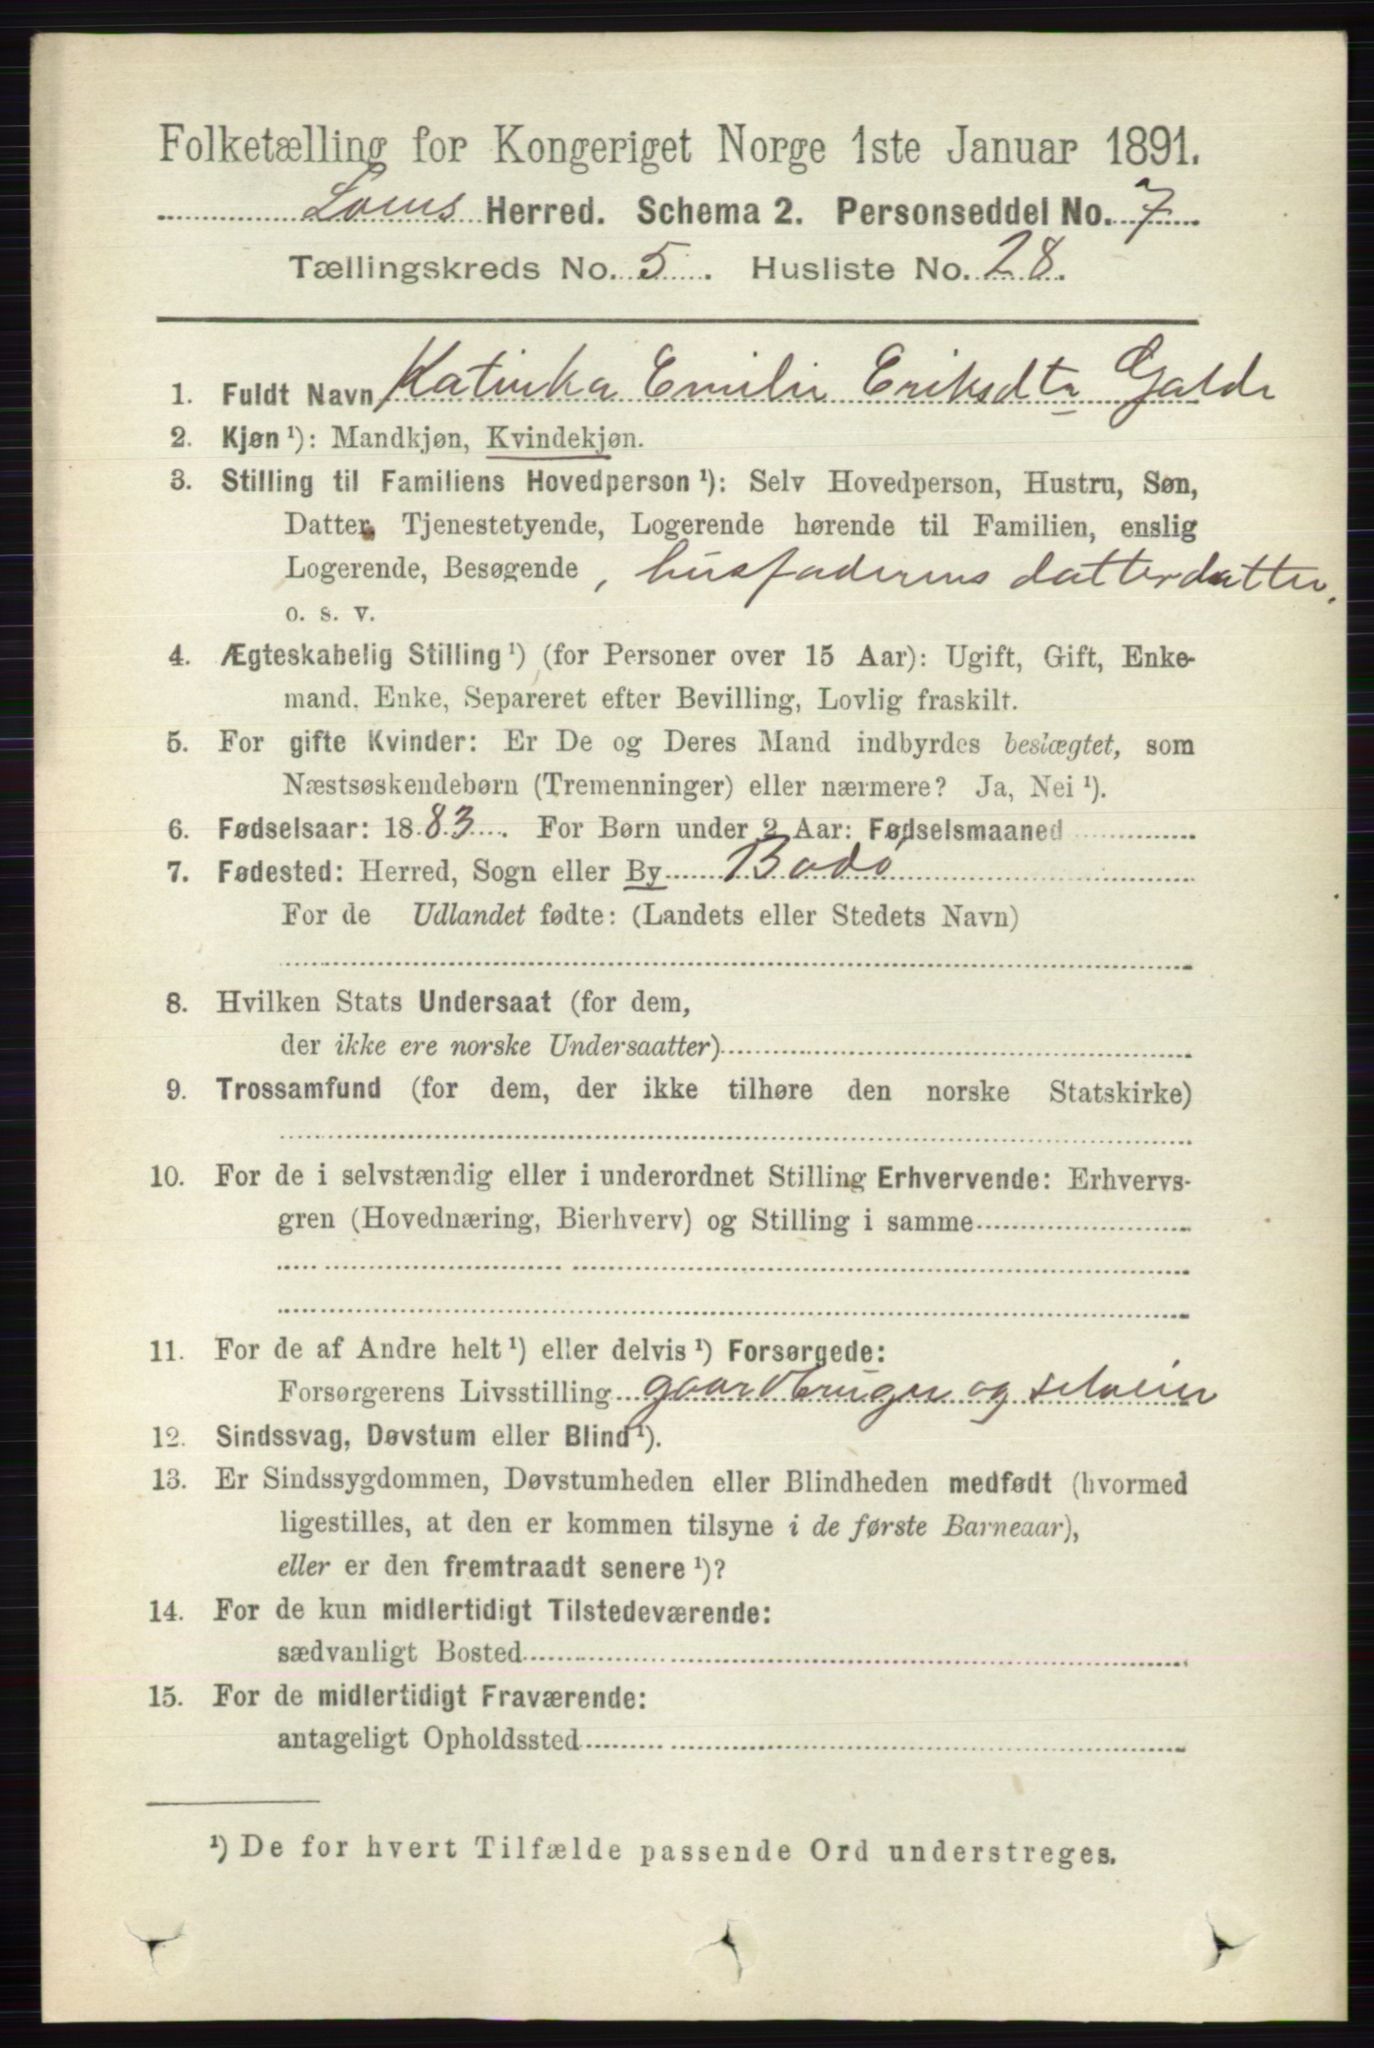 Folketælling for Kongeriget Norge 1ste Januar 1891.
Loms Herred. Schema 2. Personseddel No. 7
Tællingskreds No. 5. Husliste No. 28.
1. Fuldt Navn Katinka Emilie Eriksdtr Galde
2. Kjøn ¹): Mandkjøn, Kvindekjøn.
3. Stilling til Familiens Hovedperson ¹): Selv Hovedperson, Hustru, Søn,
Datter, Tjenestetyende, Logerende hørende til Familien, enslig
Logerende, Besøgende , husfaderens datterdatter.
o. s. v.
4. Ægteskabelig Stilling ¹) (for Personer over 15 Aar): Ugift, Gift, Enke-
mand, Enke, Separeret efter Bevilling, Lovlig fraskilt.
5. For gifte Kvinder: Er De og Deres Mand indbyrdes beslægtet, som
Næstsøskendebørn (Tremenninger) eller nærmere? Ja, Nei ¹).
6. Fødselsaar: 1883. For Børn under 2 Aar: Fødselsmaaned
7. Fødested: Herred, Sogn eller By Bodø
For de Udlandet fødte: (Landets eller Stedets Navn)
8. Hvilken Stats Undersaat (for dem,
der ikke ere norske Undersaatter)
9. Trossamfund (for dem, der ikke tilhøre den norske Statskirke)
10. For de i selvstændig eller i underordnet Stilling Erhvervende: Erhvervs-
gren (Hovednæring, Bierhverv) og Stilling i samme
11. For de af Andre helt ¹) eller delvis ¹) Forsørgede:
Forsørgerens Livsstilling gaardbruger og selveier
12. Sindssvag, Døvstum eller Blind ¹).
13. Er Sindssygdommen, Døvstumheden eller Blindheden medfødt (hvormed
ligestilles, at den er kommen tilsyne i de første Barneaar),
eller er den fremtraadt senere ¹)?
14. For de kun midlertidigt Tilstedeværende:
sædvanligt Bosted
15. For de midlertidigt Fraværende:
antageligt Opholdssted
¹) De for hvert Tilfælde passende Ord understreges.